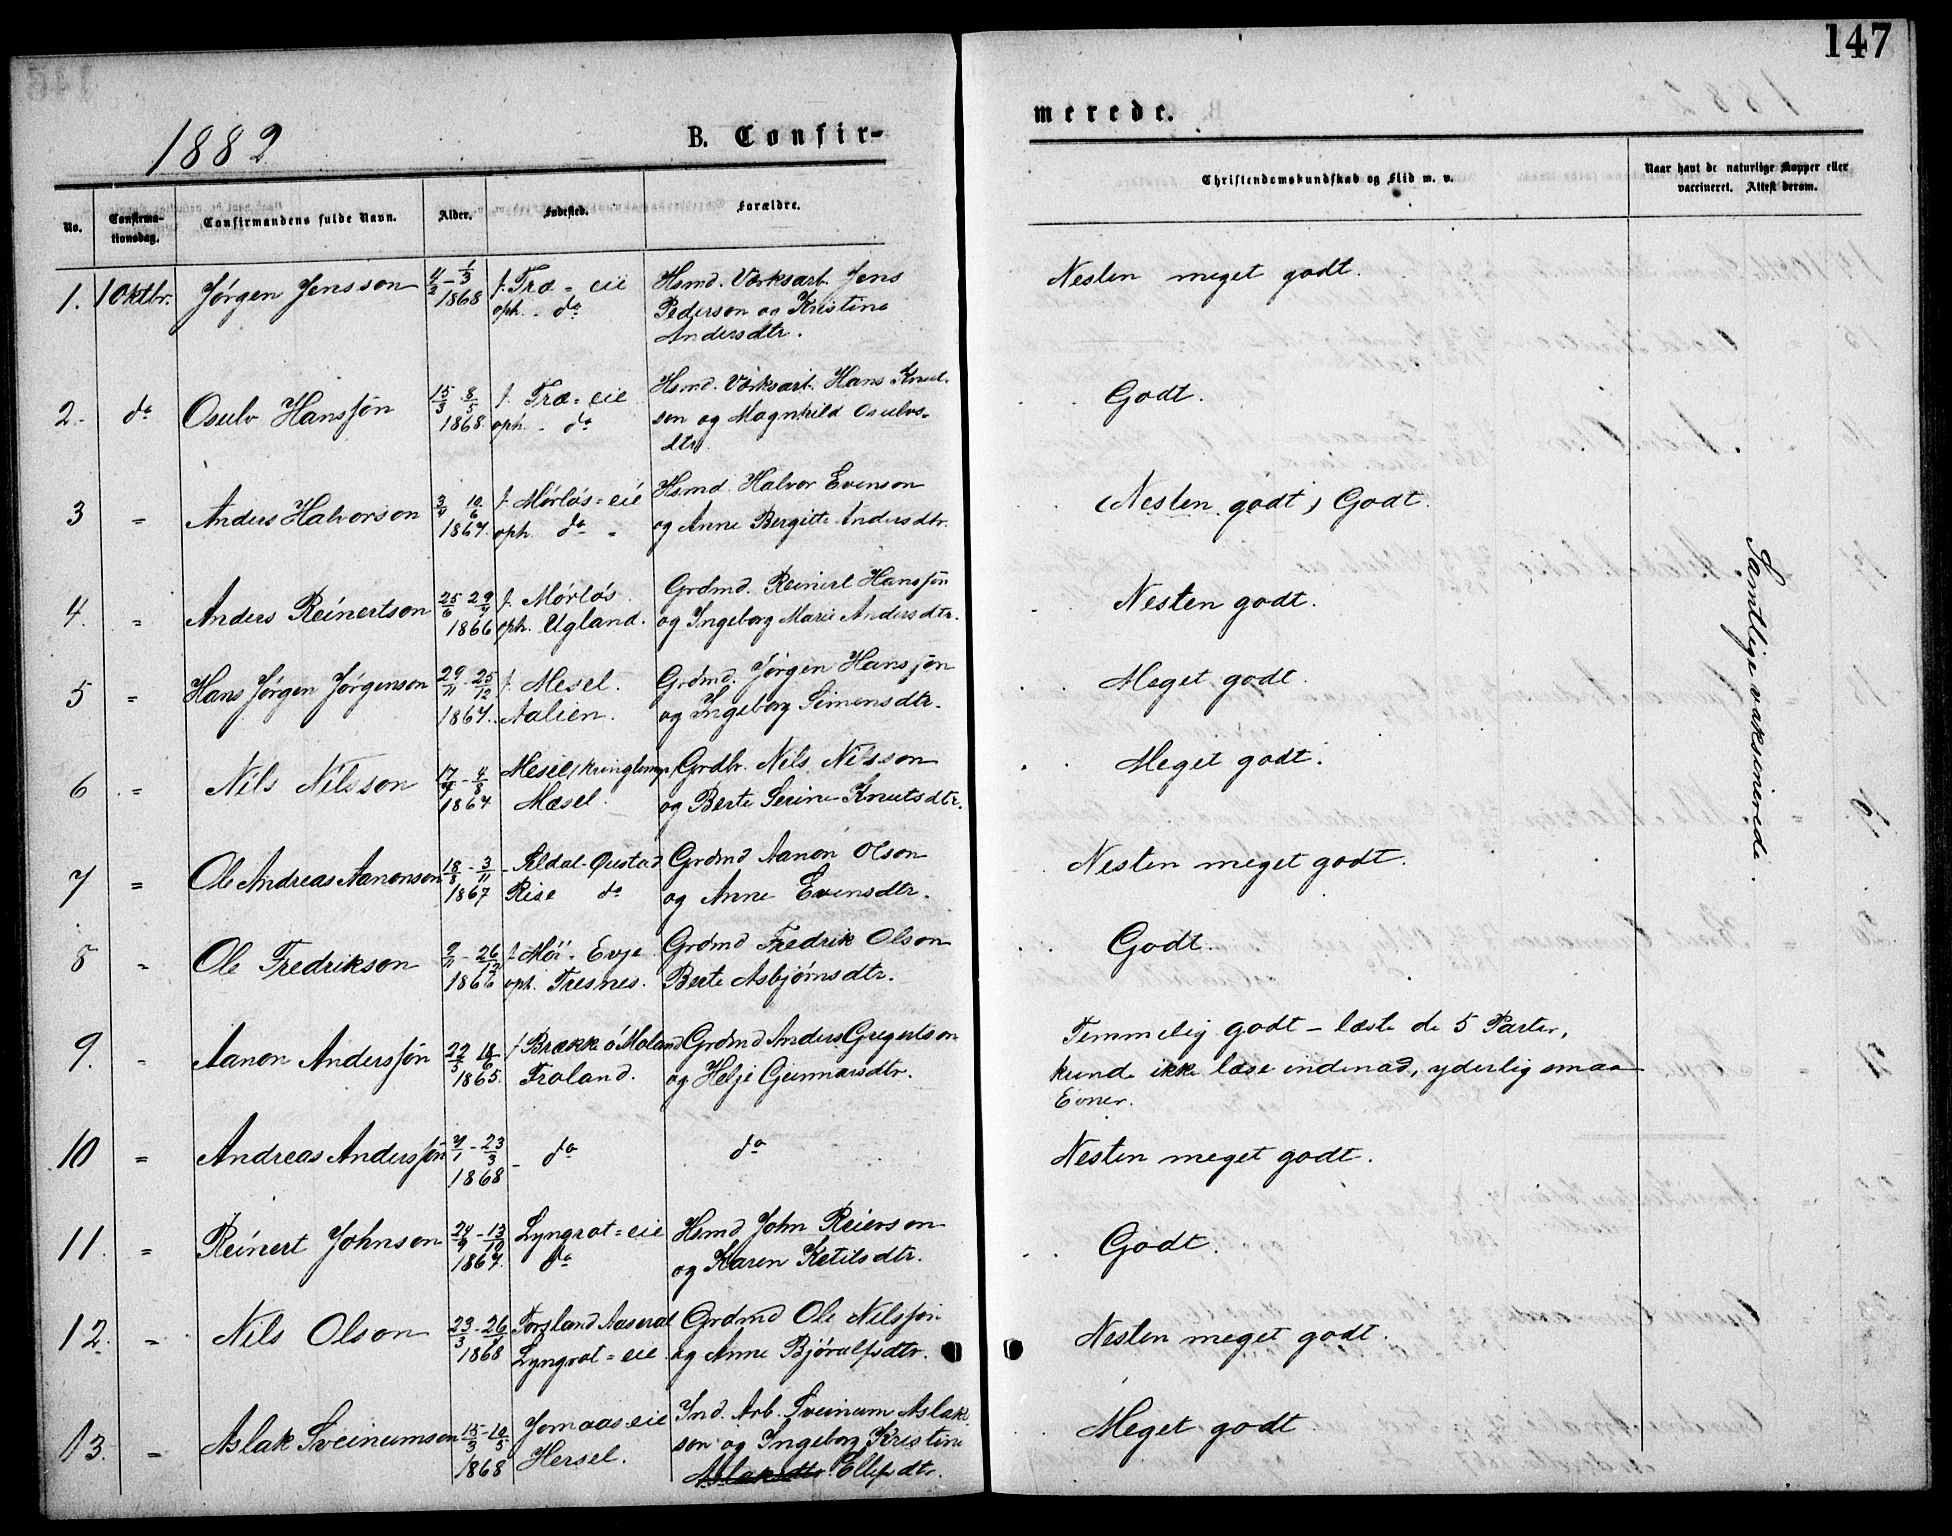 147
1882
B. Confir-
merede.
No.
Confirma-
tionsdag.
Confirmandens fulde Navn.
Alder.
Fødested.
Forældre.
Christendomskundskab og Flid m. v.
Naar havt de naturlige Kopper eller
vaccineret. Attest derom.
1. 1 Oktbr. Jørgen Jensson 4/2 - 1/3 f. Træ = eie Hsmd. Værksarb. Jens Nesten meget godt.
1868 oph. - do Pederson og Kristine
Andersdtr.
2. do Osulv Hanssøn 15/3 8/5 f. Træ = eie Hsmd. Værksarb. Hans Knut- Godt.
1868. oph. - do son og Magnhild Osulvs-
dtr.
3 = Anders Halvorson 3/4 10/6 f. Mørløs = eie Hsmd. Halvor Evenson (Nesten godt) Godt.
1867. oph. do - og Anne Bergitte Andersdtr.
4. = Anders Reinertson 25/6 - 29/9 f. Mørløs. Grdmd. Reinert Hanssøn Nesten godt.
1866 oph. Ugland. og Ingeborg Marie Andersdtr.
5 = Hans Jørgen Jørgenson 29/11 - 25/12 f. Mesel. Grdmd. Jørgen Hanssøn Meget godt.
1867. Aalien. og Ingeborg Simensdtr.
6 = Nils Nilsson 17/7 - 4/8 Mesel, Grdbr. Nils Nilsson Meget godt.
1867 Mæsel. og Berte Serine Knutsdtr.
7 = Ole Andreas Aanonson 18/8 - 3/11 Eldal - Øiestad Grdmd Aanon Olson Nesten meget godt.
1867 Rise do og Anne Evensdtr.
8 = Ole Fredrikson 9/11 - 26/12 f. Møi - Evje Grdmd Fredrik Olson Godt.
1866 oph. Fresnes. Berte Asbjørnsdtr.
9. = Aanon Anderssøn 22/5 18/6 f. Brække ó Moland Grdmd Anders Gregertson Temmelig godt - læste de 5 Parter,
1865. Froland. og Helje Gunnarsdtr. kunde ikke læse indenad, yderlig smaa
Evner.
10 = Andreas Anderssøn 7/1 - 23/3 - do do Nesten meget godt.
1868
11. = Reinert Johnson 24/9 - 13/10 Lyngrot = eie Hsmd John Reierson Godt.
1867. do og Karen Ketilsdtr.
12. = Nils Olson 23/3 - 26/4 Forsland Aaseral Grdmd Ole Nilssøn Nesten meget godt.
1868 Lyngrot = eie og Anne Bjørulfsdtr.
13. = Aslak Sveinumson 15/3 - 10/5 Jomaas eie Ind. Arb. Sveinum Aslak- Meget godt
1868 Hersel. son og Ingeborg Kristine
Aslaksdtr. Ellefsdtr.
Samtlige vaksinerede.